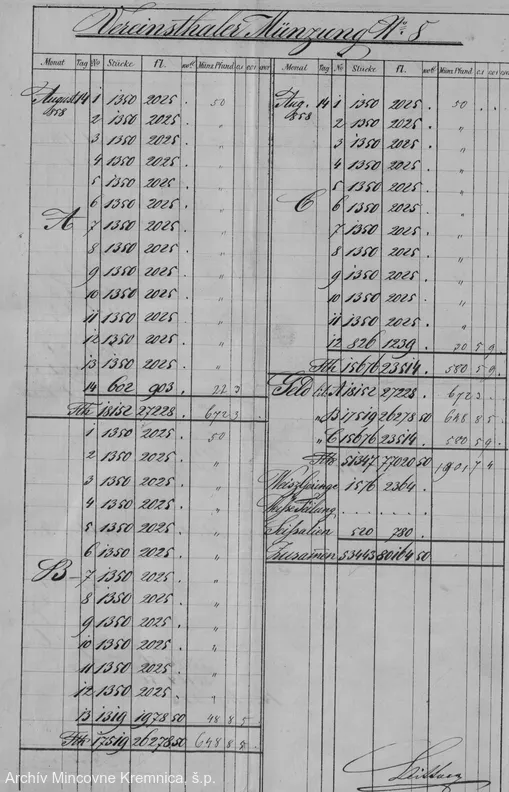 Vereinsthaler Münzung No 8
Monat Tag No Stücke fl. Münz Pfund
August 14 1 1350 2025 . 50
858 2 1350 2025 . "
3 1350 2025 . "
4 1350 2025 . "
5 1350 2025 . "
6 1350 2025 . "
A 7 1350 2025 . "
8 1350 2025 . "
9 1350 2025 . "
10 1350 2025 . "
11 1350 2025 . "
12 1350 2025 . "
13 1350 2025 . "
14 602 903 . 22 3
18152 27228 . 672 3
1 1350 2025 . 50
2 1350 2025 . "
3 1350 2025 . "
4 1350 2025 . "
5 1350 2025 . "
6 1350 2025 . "
B 7 1350 2025 . "
8 1350 2025 . "
9 1350 2025 . "
10 1350 2025 . "
11 1350 2025 . "
12 1350 2025 . "
13 1319 1978 50 48 8 5
17519 26278 50 648 8 5
Monat Tag No Stücke fl. Münz Pfund
Aug. 14 1 1350 2025 . 50
858 2 1350 2025 . "
3 1350 2025 . "
4 1350 2025 . "
5 1350 2025 . "
C 6 1350 2025 . "
7 1350 2025 . "
8 1350 2025 . "
9 1350 2025 . "
10 1350 2025 . "
11 1350 2025 . "
12 826 1239 . 30 5 9
15676 23514 . 580 5 9
Geld A 18152 27228 . 672 3
" B 17519 26278 50 648 8 5
" C 15676 23514 . 580 5 9
51347 77020 50 1901 7 4
1576 2364
520 780
Zusamen 53443 80164 50
Archív Mincovne Kremnica, š.p.